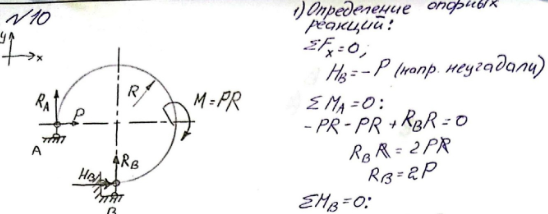 №10
y
x
R_A
P
A
R
M = PR
H_B
R_B
B
1) Определение опорных
реакций:
ΣF_x = 0;
H_B = -P (напр. неугадали)
ΣM_A = 0:
-PR - PR + R_B R = 0
R_B R = 2PR
R_B = 2P
ΣM_B = 0: